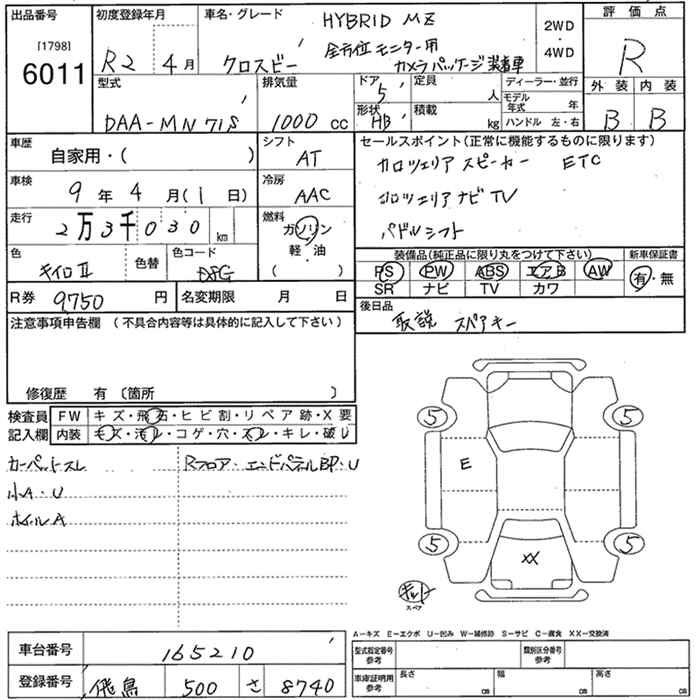 出品番号 初度登録年月 車名・グレード 評価点
[1798]
6011
R2 4月 クロスビー HYBRID MZ
全方位モニター用
カメラパッケージ装着車
2WD
・
4WD
R
外装 内装
B B
型式 排気量 ドア 定員 ディーラー・並行
DAA-MN71S 1000 cc 5 人 モデル年式 年
形状 積載
HB kg ハンドル 左・右
車歴 シフト セールスポイント(正常に機能するものに限ります)
自家用・( ) AT
カロッツェリア スピーカー ETC
車検 冷房
9年4月(1日) AAC
カロッツェリアナビ TV
走行 燃料
2万3千030 km ガソリン
軽・油
( )
パドルシフト
色 色替 色コード
キイロⅡ
装備品(純正品に限り丸をつけて下さい) 新車保証書
PS PW ABS エアB AW 有・無
SR ナビ TV カワ
R券 9,750円 名変期限 月 日
後日品
取説 スペアキー
注意事項申告欄(不具合内容等は具体的に記入して下さい)
修復歴 有〔箇所 〕
検査員 FW キズ・飛石・ヒビ割・リペア跡・X要
記入欄 内装 キズ・汚レ・コゲ・穴・スレ・キレ・破レ
カーペットスレ Rフロア・エンドパネルBP・U
小A・U
ホイルA
5 5
E
5 5
XX
キット
スペア
A-キズ E-エクボ U-凹み W-補修跡 S-サビ C-腐食 XX-交換済
車台番号 165210
型式指定番号 参考 類別区分番号 参考
登録番号 飛鳥 500 さ 8740
車庫証明用 参考 長さ cm 幅 cm 高さ cm